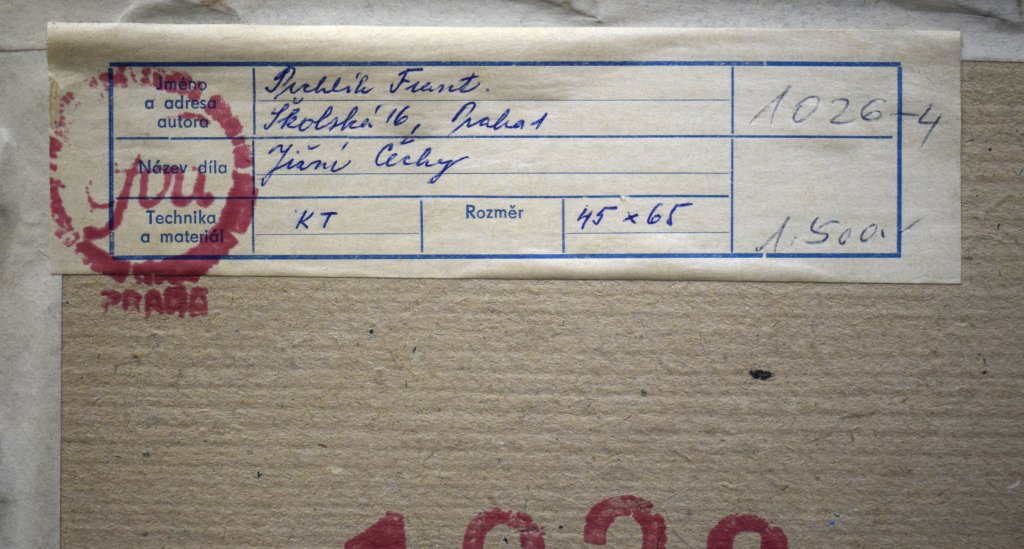 Jméno
a adresa
autora
Frant.
Školská 16, Praha 1
1026-4
Název díla
Jižní Čechy
Technika
a materiál
KT
Rozměr
45 x 65
1.500.
PRAHA